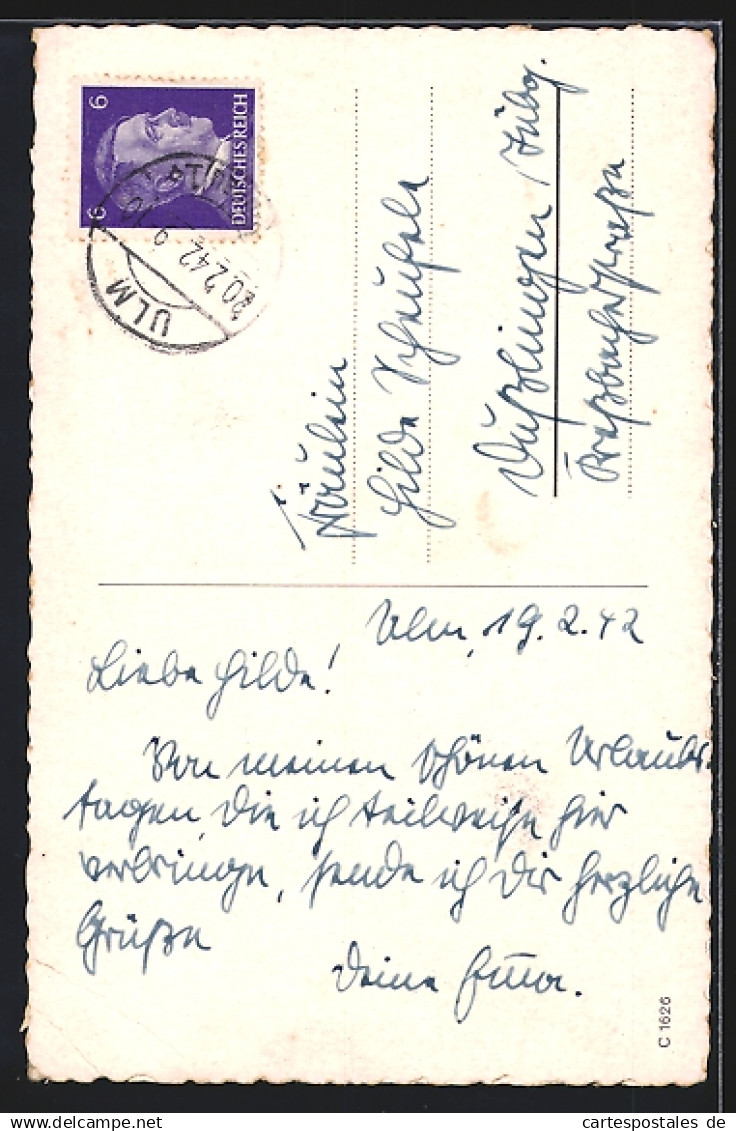 6
6
DEUTSCHES REICH
ULM
20.2.42
Fräulein
Hilde Scheufele
Dußlingen / Tübg.
Ulm, 19.2.42
Liebe Hilde!
Von meinen schönen Urlaubs-
tagen, die ich teilweise hier
verbringe, sende ich Dir herzliche
Grüße
Deine Emma.
C 1626
cartespostales de